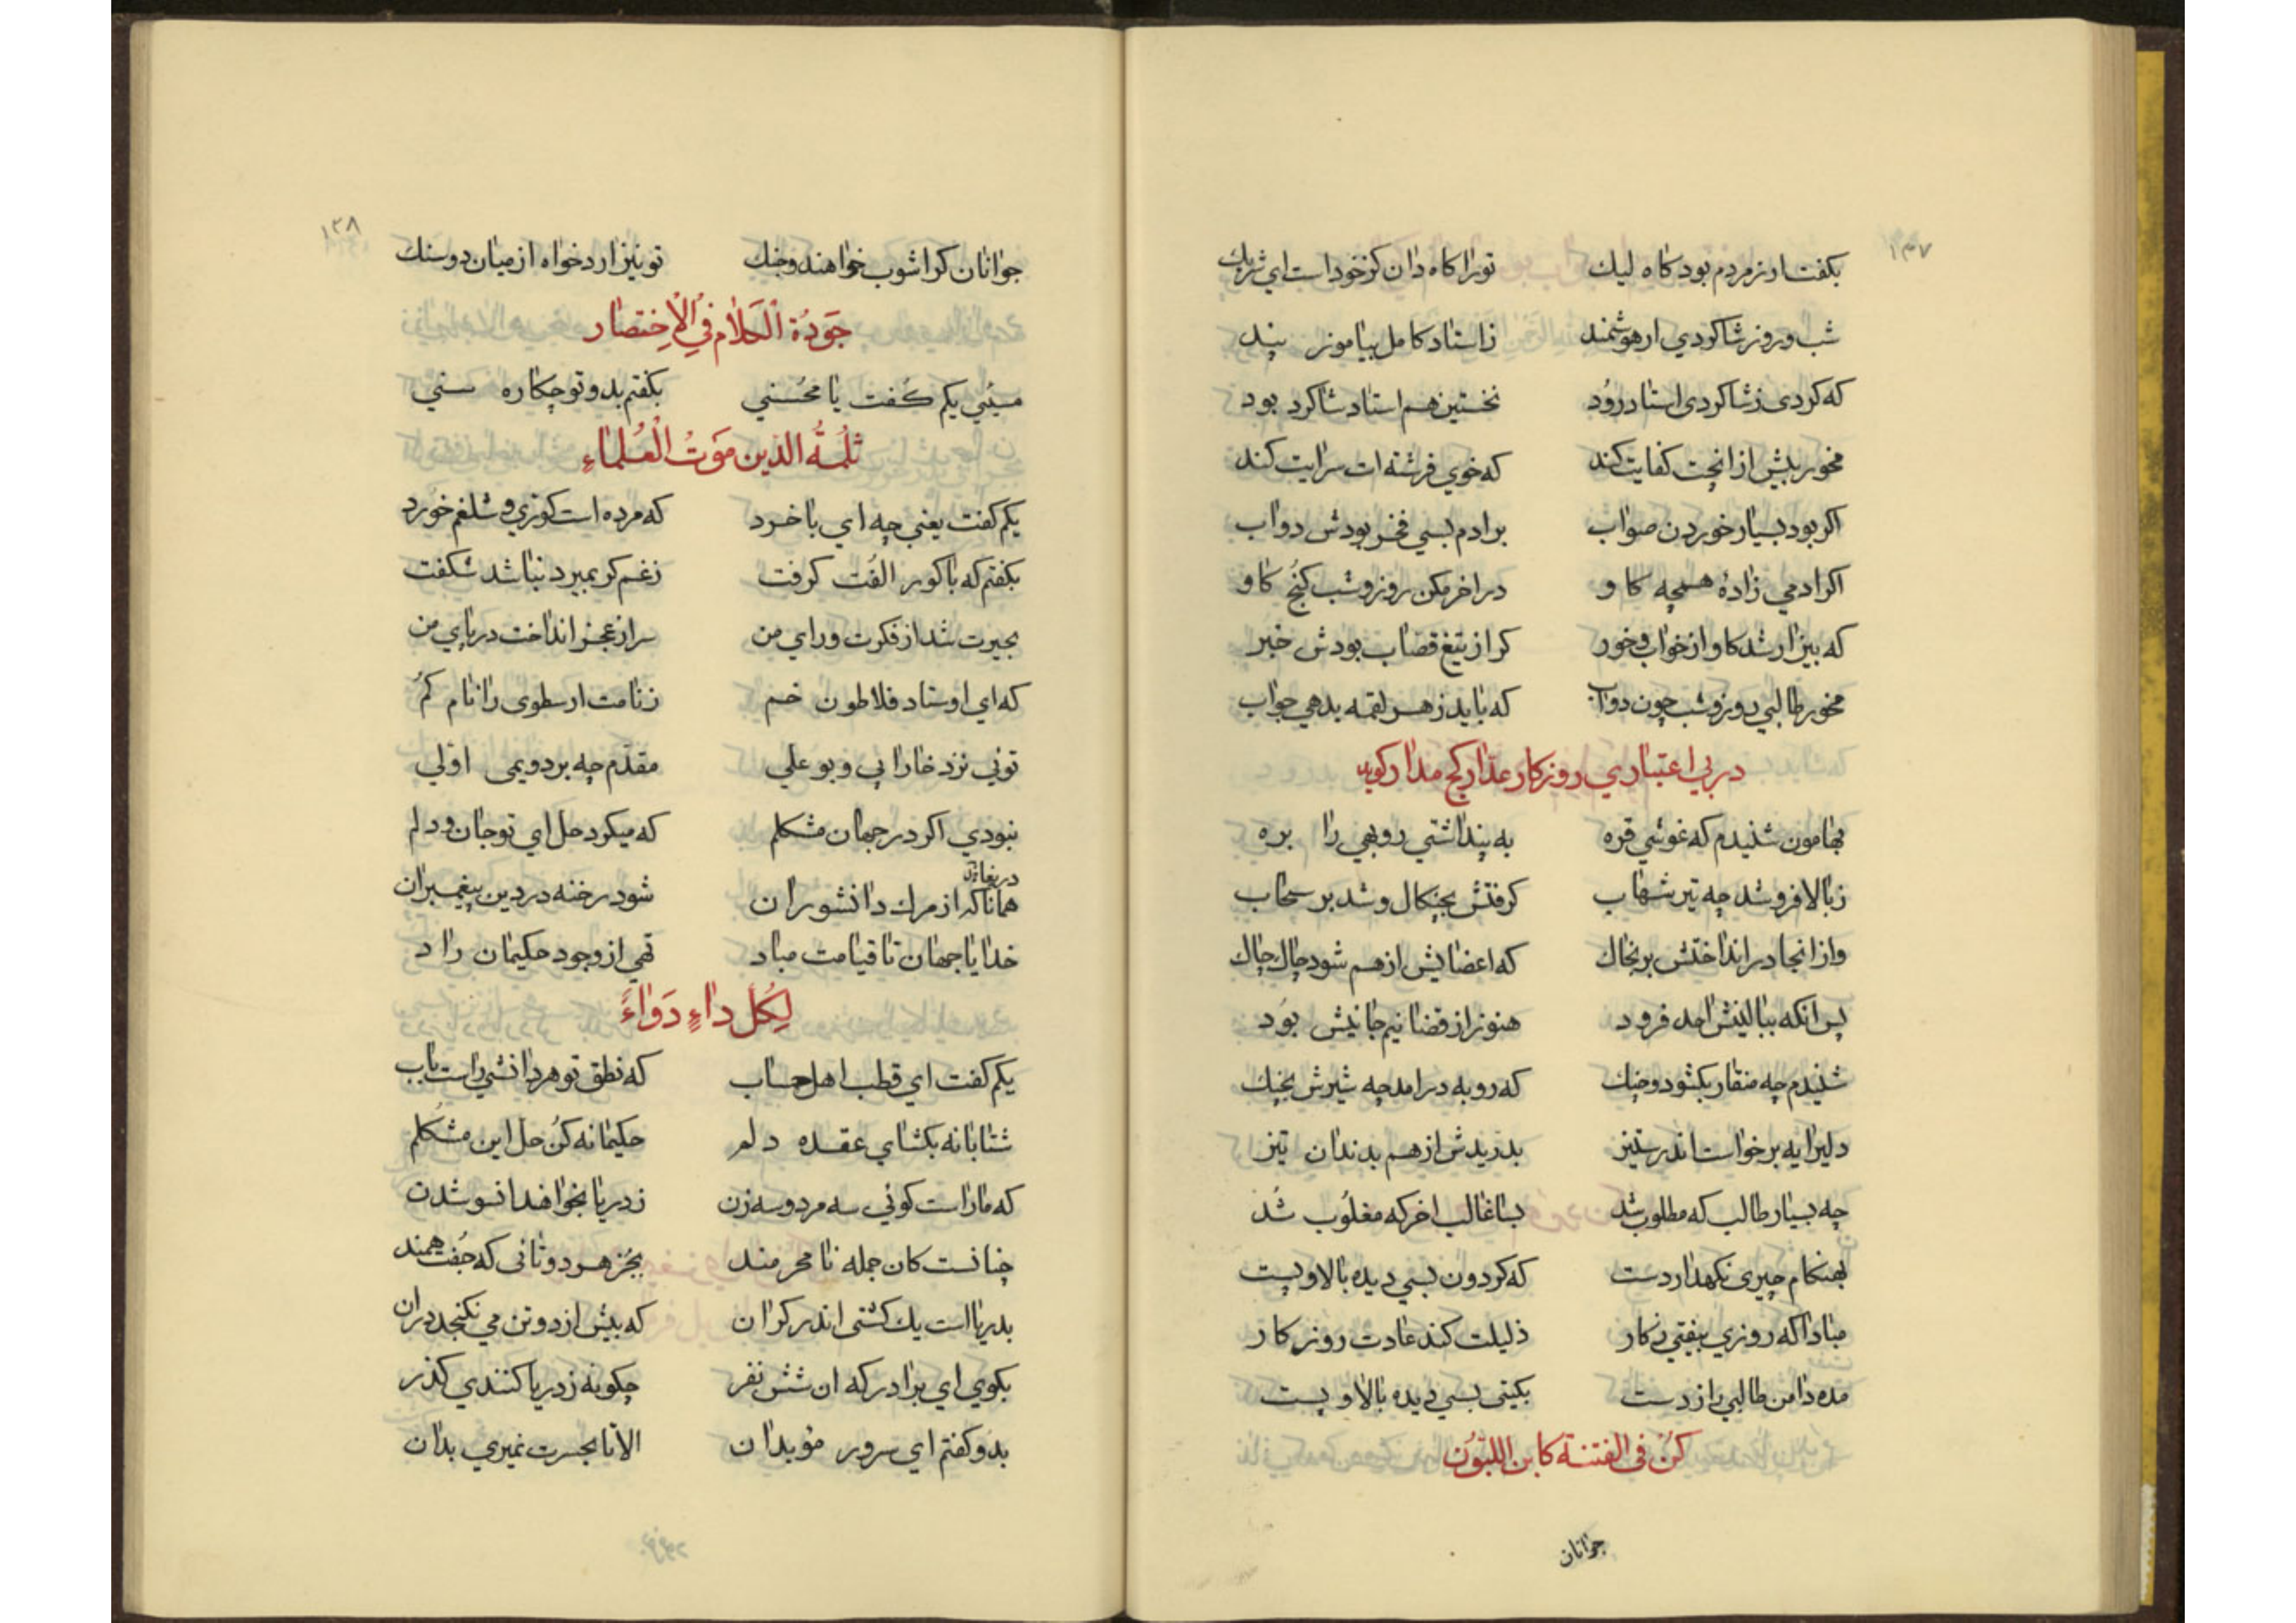 ۱۳۷
بكفت ار ز مردم بود كاه ليك تو را كاه دان كز خود است اي شريك
شب و روز شاكردي ار هوشمند ز استاد كامل بياموز پند
كه كردى ز شاكردى استاد زود نخستين هم استاد شاكرد بود
مخور بيش از انچت كفايت كند كه خوي فرشته ات سرايت كند
اكر بود بسيار خوردن صواب بر ادم بسي فخر بودش دواب
اكر ادمي زاده همچه كاو در اخر مكن روز و شب كنج كاو
كه بيزار شد كاو از خواب و خور كر از تيغ قصاب بودش خبر
مخور طالبي روز و شب چون دواب كه بايد ز هر لقمه بدهي جواب
در بي اعتباري روزكار غدار كج مدار كويد
بهامون شنيدم كه غوشي قره به پنداشتي روبهي را بره
ز بالا فرو شد چه تير شهاب كرفتش بچنكال و شد بر سحاب
واز انجا در انداختش بر بخاك كه اعضايش از هم شود چاك چاك
پس انكه ببالينش امد فرود هنوز از قضا نيم جانيش بود
شنيدم چه منقار بكشود و چنك كه روبه در امد چه شيرش بجنك
دليرايه برخواست اندر ستيز بدريدش از هم بدندان تيز
چه بسيار طالب كه مطلوب شد بسا غالب اخر كه مغلوب شد
بهنكام چيرى نكهدار دست كه كردون بسي ديده بالا و پست
مبادا كه روزي بيفتي ز كار ذليلت كند عادت روزكار
مده دامن طالبي را ز دست بكيتى بسي ديده بالا و پست
كن فى الفتنة كابن اللبون
جوانان
۱۳۸
جوانان كر اشوب خواهند و جنك تو نيز ار دخواه از ميان دو سنك
جَودُة الكلام في الاِختصار
بكفتم بدو تو چكاره سني
ثلمةُ الدين مَوتُ العُلماءِ
يكم كفت يعني چه اي با خرد كه مرده است كوزي و شلغم خورد
بكفتم كه با كور الفت كرفت ز غم كر بميرد نباشد شكفت
بحيرت شد از فكرت و راي من سر از عجز انداخت در پاي من
كه اي اوستاد فلاطون خم ز نامت ارسطوى را نام كم
توئي نزد ما فارابي و بو علي مقدم چه بر دويمى اوّلي
نبودي اكر در جهان مشكلم كه ميكرد حل اي تو جان و دلم
همانا كه از مرك دانشوران شود رخنه در دين پيغمبران
خدايا جهان تا قيامت مباد تهي از وجود حكيمان راد
لِكُل داءٍ دَواءً
يكم كفت اي قطب اهل حساب كه نطق تو هر دانشي راست باب
شتابانه بكشاي عقده دلم حكيمانه كن حل اين مشكلم
كه ما راست كوئي سه مرد و سه زن ز دريا بخواهند انسو شدن
چنانست كان جمله نامحرمند بجز هر دو تانى كه جفت همند
بدريا است يك كشتى اندر كران كه بيش از دو تن مي نكنجد دران
بكوي اي برادر كه ان شش نفر چكونه ز دريا كنندي كذر
بدو كفتم اي سرور مؤبدان الا تا بحسرت نميري بدان